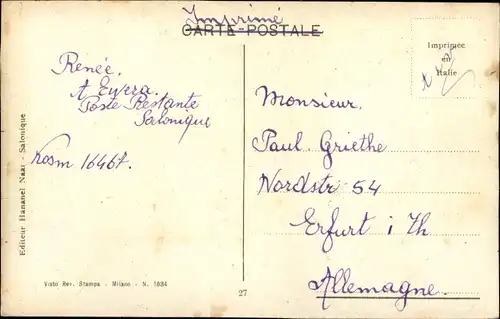 Imprimé
CARTE-POSTALE
Imprimée
en
Italie
Renée.
Poste Restante
Salonique
Kosm 16467.
Monsieur.
Paul Griethe
Nordstr 54
Erfurt i Th
Allemagne.
Editeur Hananel Naar - Salonique
Visto Rev. Stampa - Milano - N. 1884
27